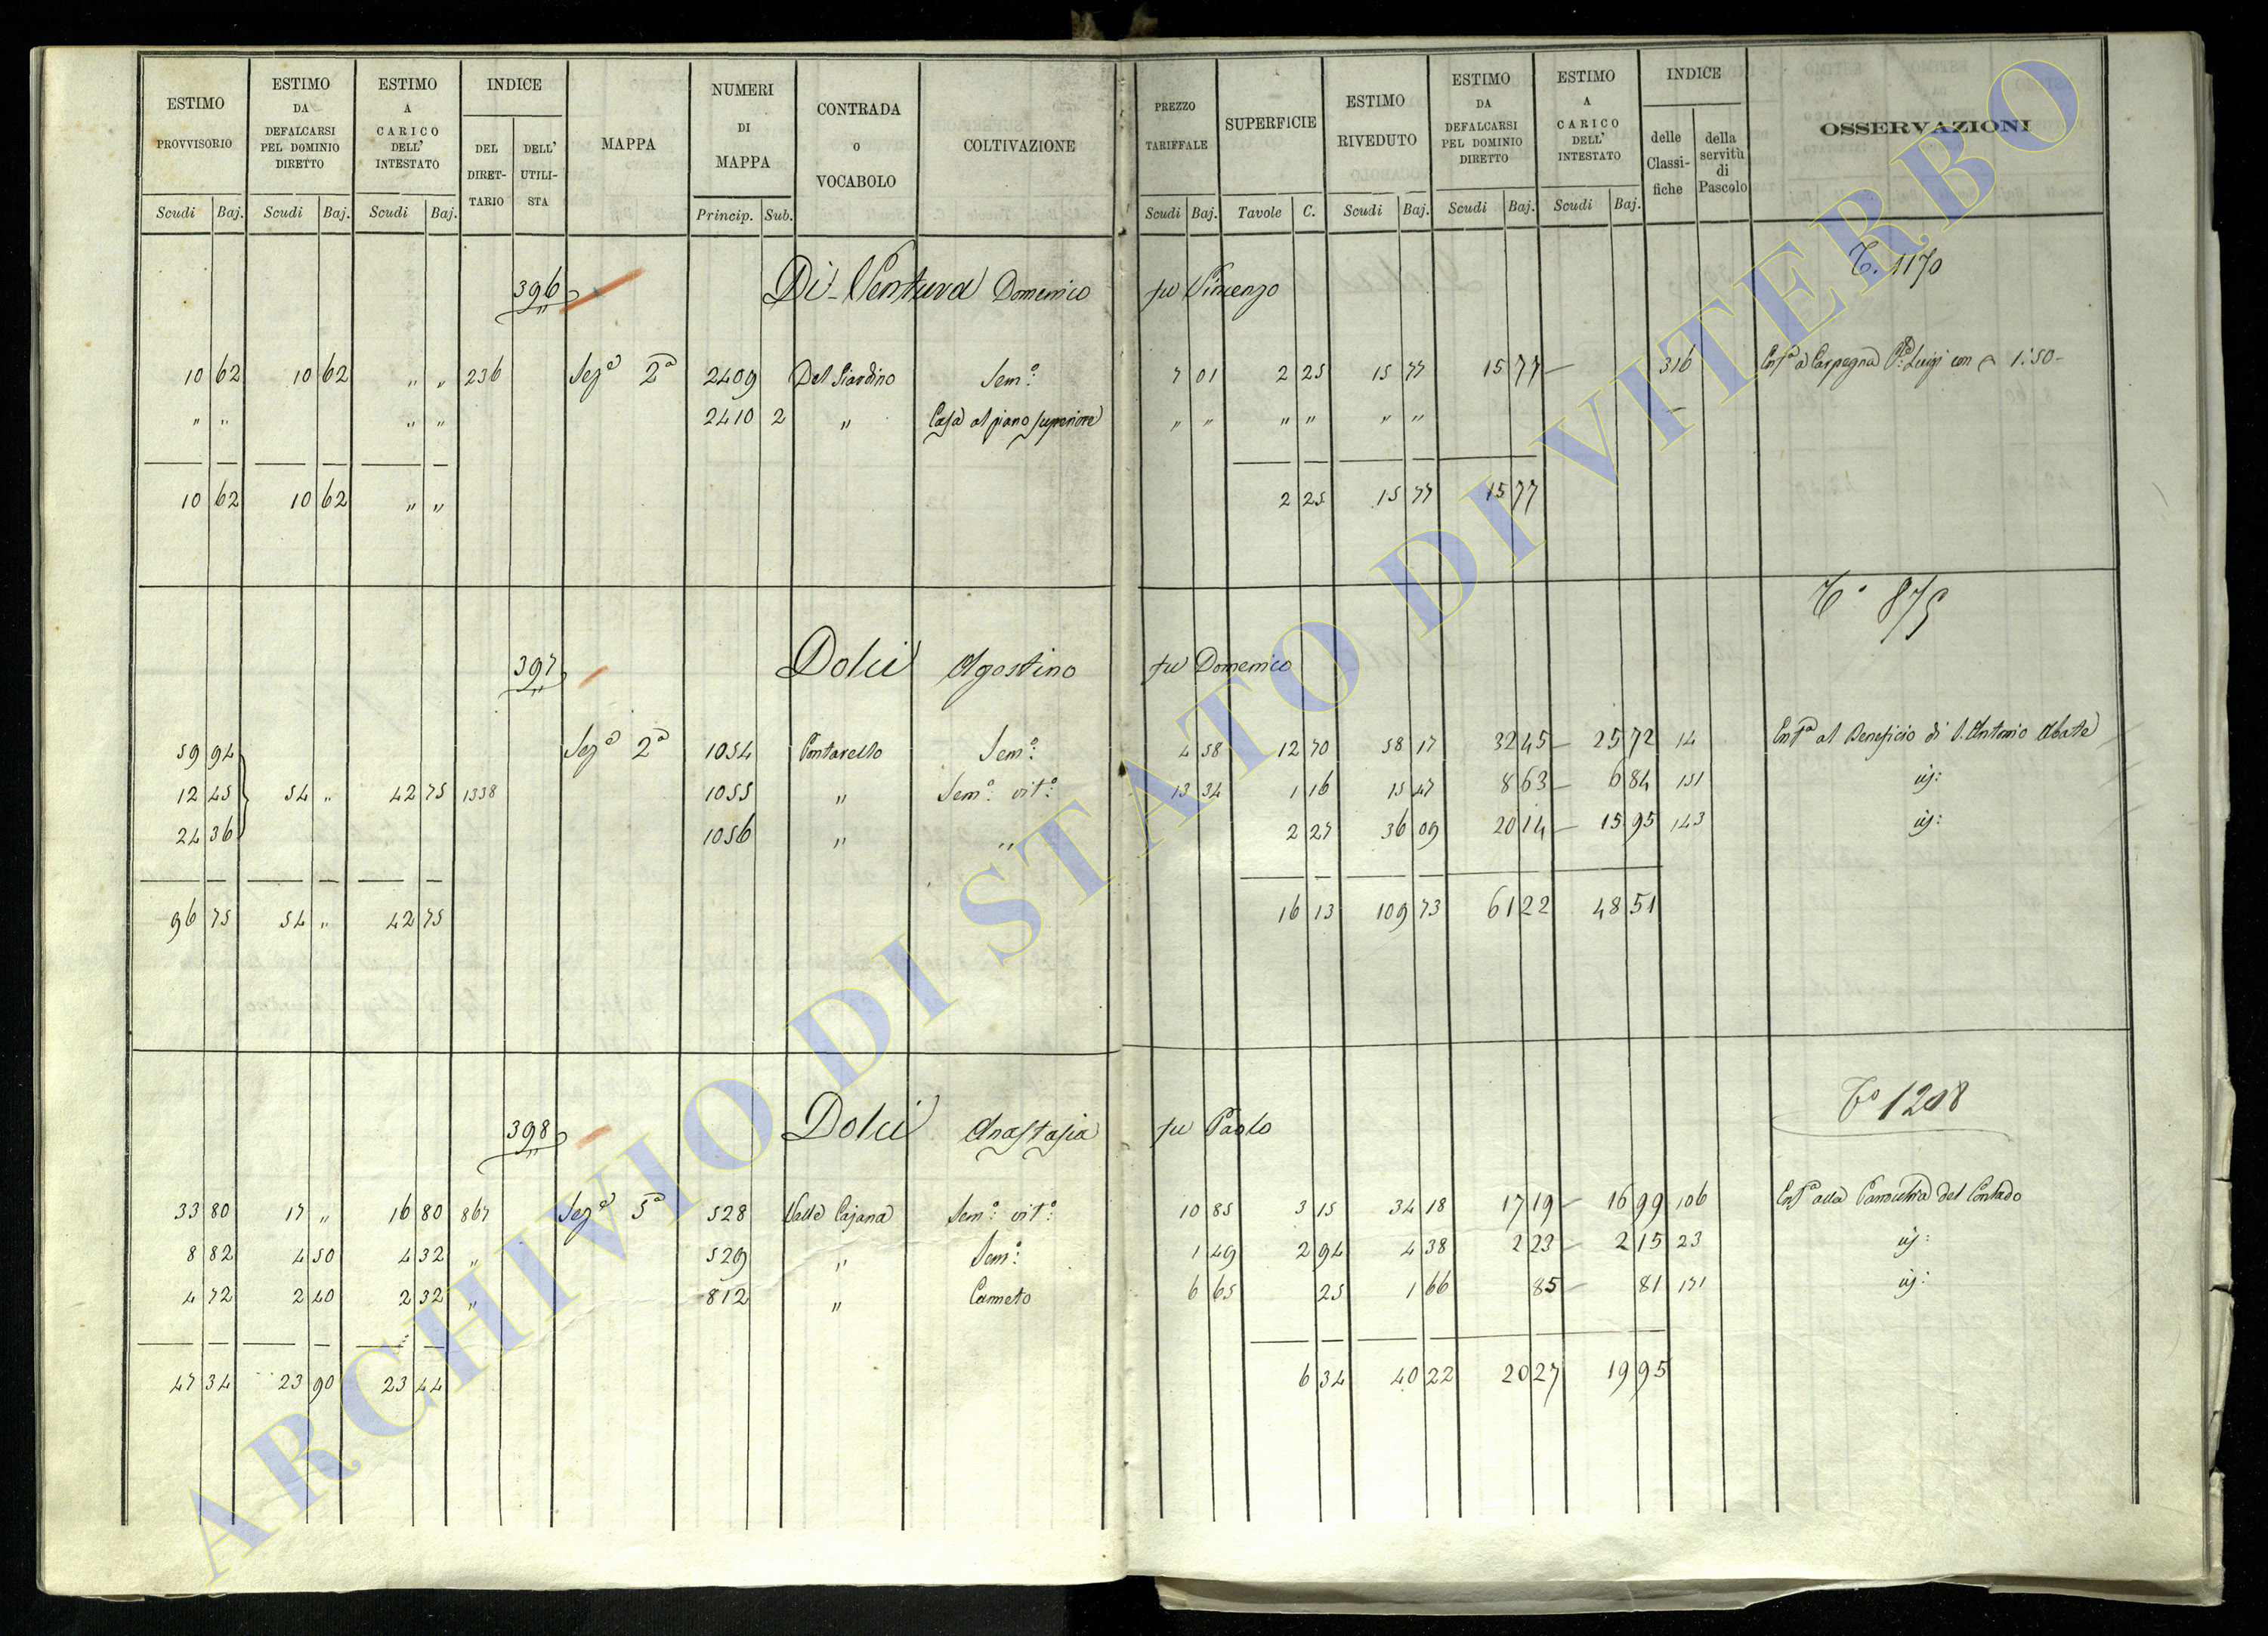 ESTIMO PROVVISORIO ESTIMO DA DEFALCARSI PEL DOMINIO DIRETTO ESTIMO A CARICO DELL' INTESTATO INDICE DEL DIRET-TARIO DELL' UTILI-STA MAPPA NUMERI DI MAPPA CONTRADA O VOCABOLO COLTIVAZIONE PREZZO TARIFFALE SUPERFICIE ESTIMO RIVEDUTO ESTIMO DA DEFALCARSI PEL DOMINIO DIRETTO ESTIMO A CARICO DELL' INTESTATO INDICE delle Classi-fiche della servitù di Pascolo OSSERVAZIONI
Scudi Baj. Scudi Baj. Scudi Baj. Princip. Sub. Scudi Baj. Tavole C. Scudi Baj. Scudi Baj. Scudi Baj.
T. 1170
396 Di-Ventura Domenico fu Vincenzo
10 62 10 62 " " 236 Seze 2a 2409 Del Giardino Sem.o 7 01 2 25 15 77 15 77 — 316 Enfa a Carpegna Luigi con 1:50-
" " " " 2410 2 " Casa al piano superiore " " " " " " —
10 62 10 62 " " 2 25 15 77 15 77
To 875
397 Dolci Agostino fu Domenico
59 94 Seze 2a 1054 Pontarello Sem.o 4 58 12 70 58 17 32 45 — 25 72 14 Enfa al Beneficio di S. Antonio Abate
12 45 54 " 42 75 1338 1055 " Sem.o vit.o 13 34 1 16 15 47 8 63 — 6 84 151 id:
24 36 1056 " " 2 27 36 09 20 14 — 15 95 143 id:
96 75 54 " 42 75 16 13 109 73 61 22 48 51
To 1208
398 Dolci Anastasia fu Paolo
33 80 17 " 16 80 867 Seze 5a 528 Valle Cajana Sem.o vit.o 10 85 3 15 34 18 17 19 — 16 99 106 Enfa alla Parrocchia del Contado
8 82 4 50 4 32 " 529 " Sem.o 1 49 2 94 4 38 2 23 — 2 15 23 id:
4 72 2 40 2 32 " 812 " Canneto 6 65 25 1 66 85 — 81 171 id:
47 34 23 90 23 44 6 34 40 22 20 27 19 95
ARCHIVIO DI STATO DI VITERBO